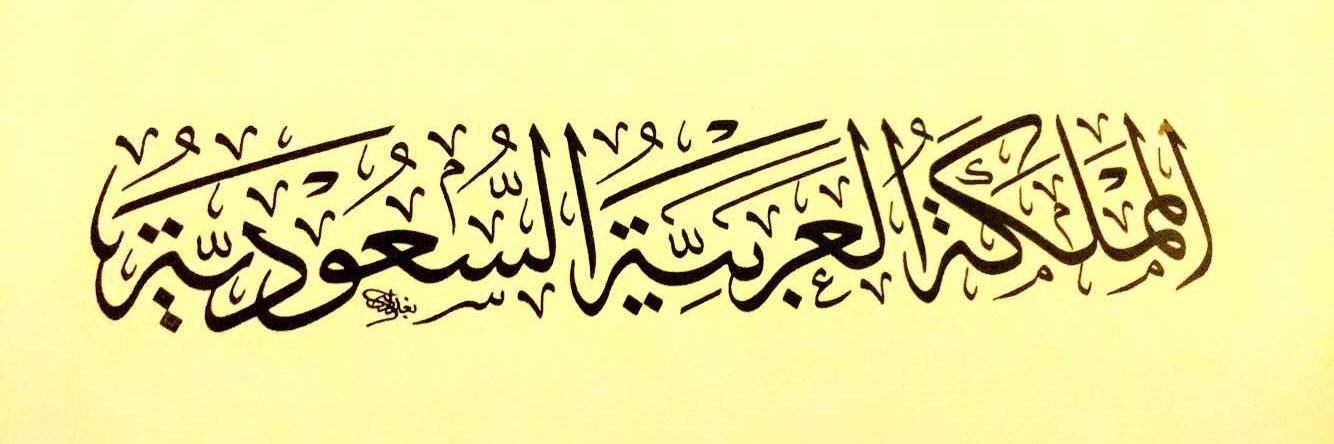 المَمْلَكَةُ العَرَبِيَّةُ السُّعُودِيَّةُ